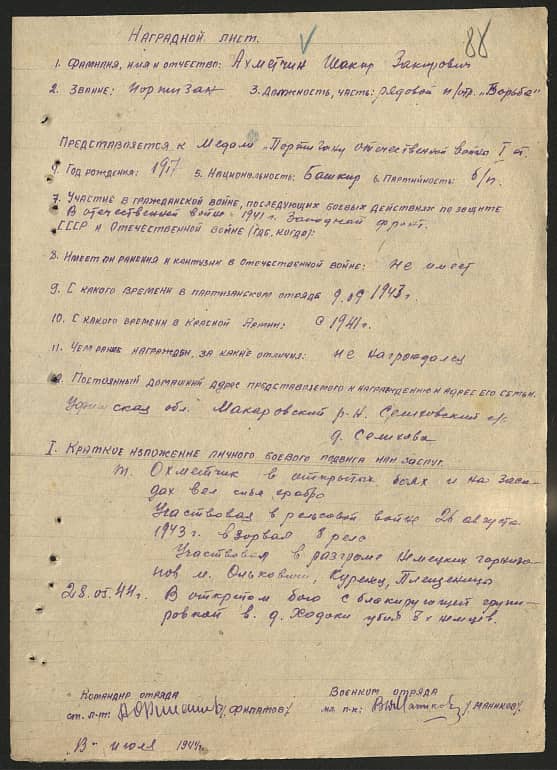 88
Наградной лист.
1. Фамилия, имя и отчество: Ахметчин Шакир Закирович
2. Звание: портизан 3. Должность, часть: рядовой п/отр. „Борьба"
Представляется к медали „Портизану отечественной войны I ст.
4. Год рождения: 1917 5. Национальность: Башкир 6. Партийность: б/п.
7. Участие в гражданской войне, последующих боевых действиях по защите
В отечественной войне - 1941 г. Западной фронт.
СССР и Отечественной войне (где, когда):
8. Имеет ли ранения и контузии в отечественной войне: не имеет
9. С какого времени в партизанском отряде 9.09 1943 г.
10. С какого времени в Красной Армии: с 1941 г.
11. Чем ранее награжден, за какие отличия: не нагрождался
Постоянный домашний адрес представляемого к награждению и адрес его семьи.
обл. Макаровский р-н.
д. Семихова
I. Краткое изложение личного боевого подвига или заслуг.
т. Охметчик в открытых боях и на заса-
дах вел себя храбро
Участвовал в рельсовой войне 26 августа
1943 г. взорвал 8 релс
Участвовал в разгроме немецких гарнизо-
нов м. Куренец, Плещеницы
28.05.44 г. В открытом бою с блакирующей групи-
ровкой в д. Ходоки убил 8х немцев.
Командир отряда Военком отряда
ст. л-т: /Филатов/ мл. п-к: /Маников/
июля 1944 г.